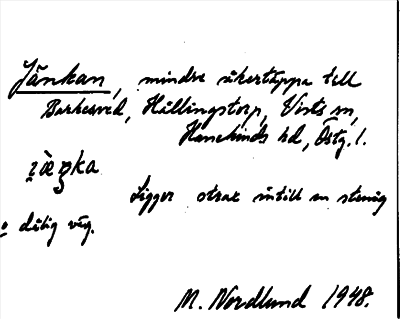 Jänkan, mindre åkertäppa till
Barkesved, Hällingstorp, Vists sn,
Hanekinds hd, Östg. l.
Ligger strax intill en stenig
o dålig väg.
M. Nordlund 1948.